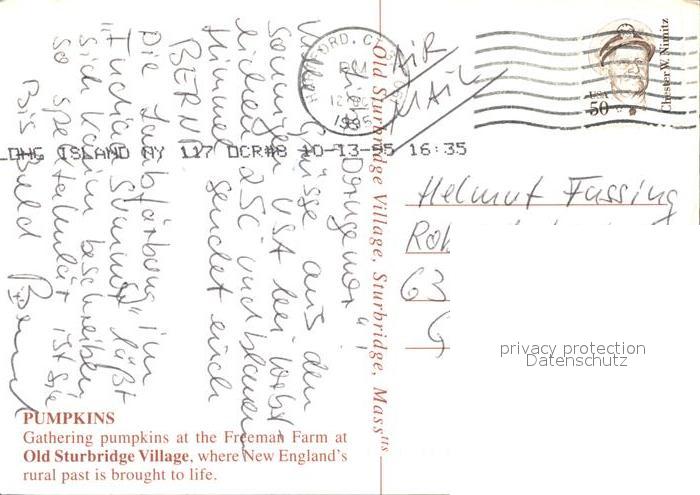 Liebe "Daugemor"!
Viele Grüsse aus den
sonnigen USA bei herbst-
lichen 25C und blauem
Himmel sendet euch
BERND
Die Laubfärbung im
"Indian Summer" läßt
sich kaum beschreiben
so spektakulär ist sie
Bis bald Bernd
PUMPKINS
Gathering pumpkins at the Freeman Farm at
Old Sturbridge Village, where New England's
rural past is brought to life.
Old Sturbridge Village, Sturbridge, Masstts
HARTFORD, CT
12
1995
LONG ISLAND NY 117 OCR#8 10-13-95 16:35
AIR
MAIL
USA
50
Chester W. Nimitz
Helmut Fussing
63
G
privacy protection
Datenschutz